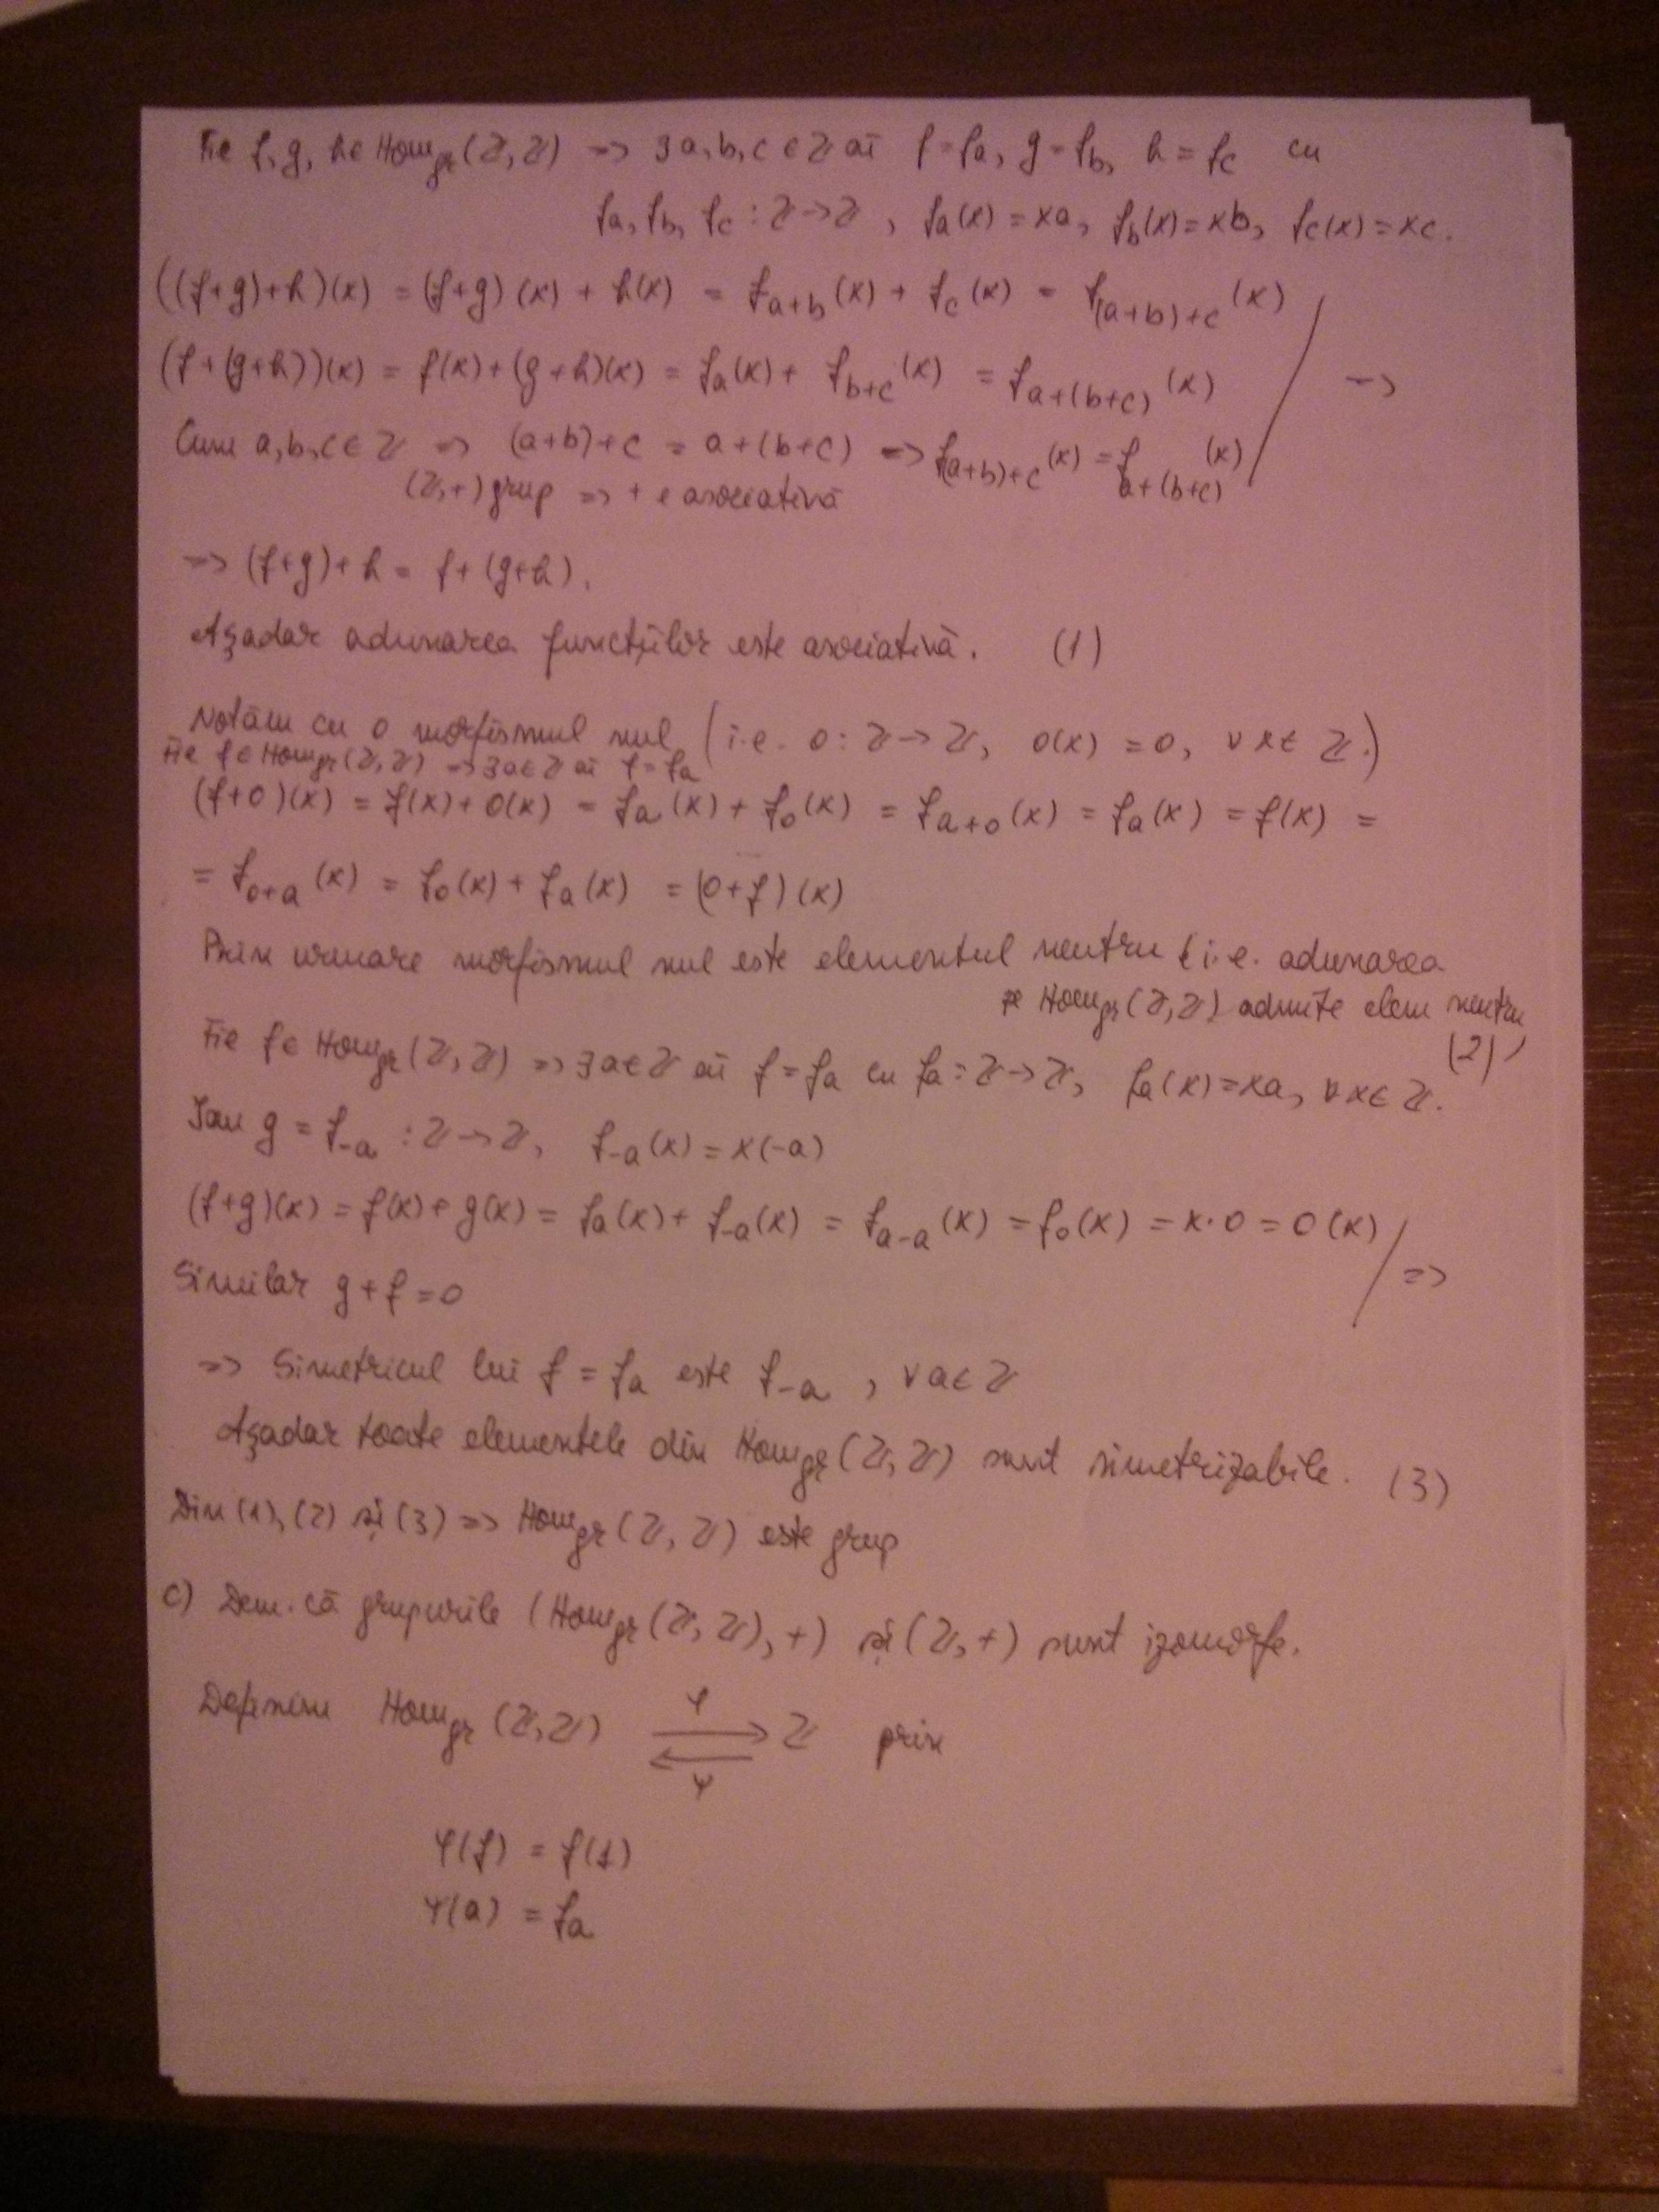 Fie f, g, h ∈ Hom_gr(ℤ, ℤ) => ∃ a, b, c ∈ ℤ aî f = f_a, g = f_b, h = f_c cu
f_a, f_b, f_c : ℤ → ℤ, f_a(x) = xa, f_b(x) = xb, f_c(x) = xc.
((f+g)+h)(x) = (f+g)(x) + h(x) = f_{a+b}(x) + f_c(x) = f_{(a+b)+c}(x)
(f+(g+h))(x) = f(x)+(g+h)(x) = f_a(x) + f_{b+c}(x) = f_{a+(b+c)}(x) =>
Cum a, b, c ∈ ℤ => (a+b)+c = a+(b+c) => f_{(a+b)+c}(x) = f_{a+(b+c)}(x)
(ℤ,+) grup => + e asociativă
=> (f+g)+h = f+(g+h).
Așadar adunarea funcțiilor este asociativă. (1)
Notăm cu 0 morfismul nul (i.e. 0 : ℤ → ℤ, 0(x) = 0, ∀ x ∈ ℤ.)
Fie f ∈ Hom_gr(ℤ, ℤ) => ∃ a ∈ ℤ aî f = f_a
(f+0)(x) = f(x) + 0(x) = f_a(x) + f_0(x) = f_{a+0}(x) = f_a(x) = f(x) =
= f_{0+a}(x) = f_0(x) + f_a(x) = (0+f)(x)
Prin urmare morfismul nul este elementul neutru (i.e. adunarea
pe Hom_gr(ℤ, ℤ) admite elem neutru)
(2)
Fie f ∈ Hom_gr(ℤ, ℤ) => ∃ a ∈ ℤ aî f = f_a cu f_a : ℤ → ℤ, f_a(x) = xa, ∀ x ∈ ℤ.
Iau g = f_{-a} : ℤ → ℤ, f_{-a}(x) = x(-a)
(f+g)(x) = f(x) + g(x) = f_a(x) + f_{-a}(x) = f_{a-a}(x) = f_0(x) = x·0 = 0(x)
Similar g + f = 0 =>
=> Simetricul lui f = f_a este f_{-a}, ∀ a ∈ ℤ
Așadar toate elementele din Hom_gr(ℤ, ℤ) sunt simetrizabile. (3)
Din (1), (2) și (3) => Hom_gr(ℤ, ℤ) este grup
c) Dem. că grupurile (Hom_gr(ℤ, ℤ), +) și (ℤ, +) sunt izomorfe.
Definim Hom_gr(ℤ, ℤ) ⇄ ℤ prin
φ
ψ
φ(f) = f(1)
ψ(a) = f_a